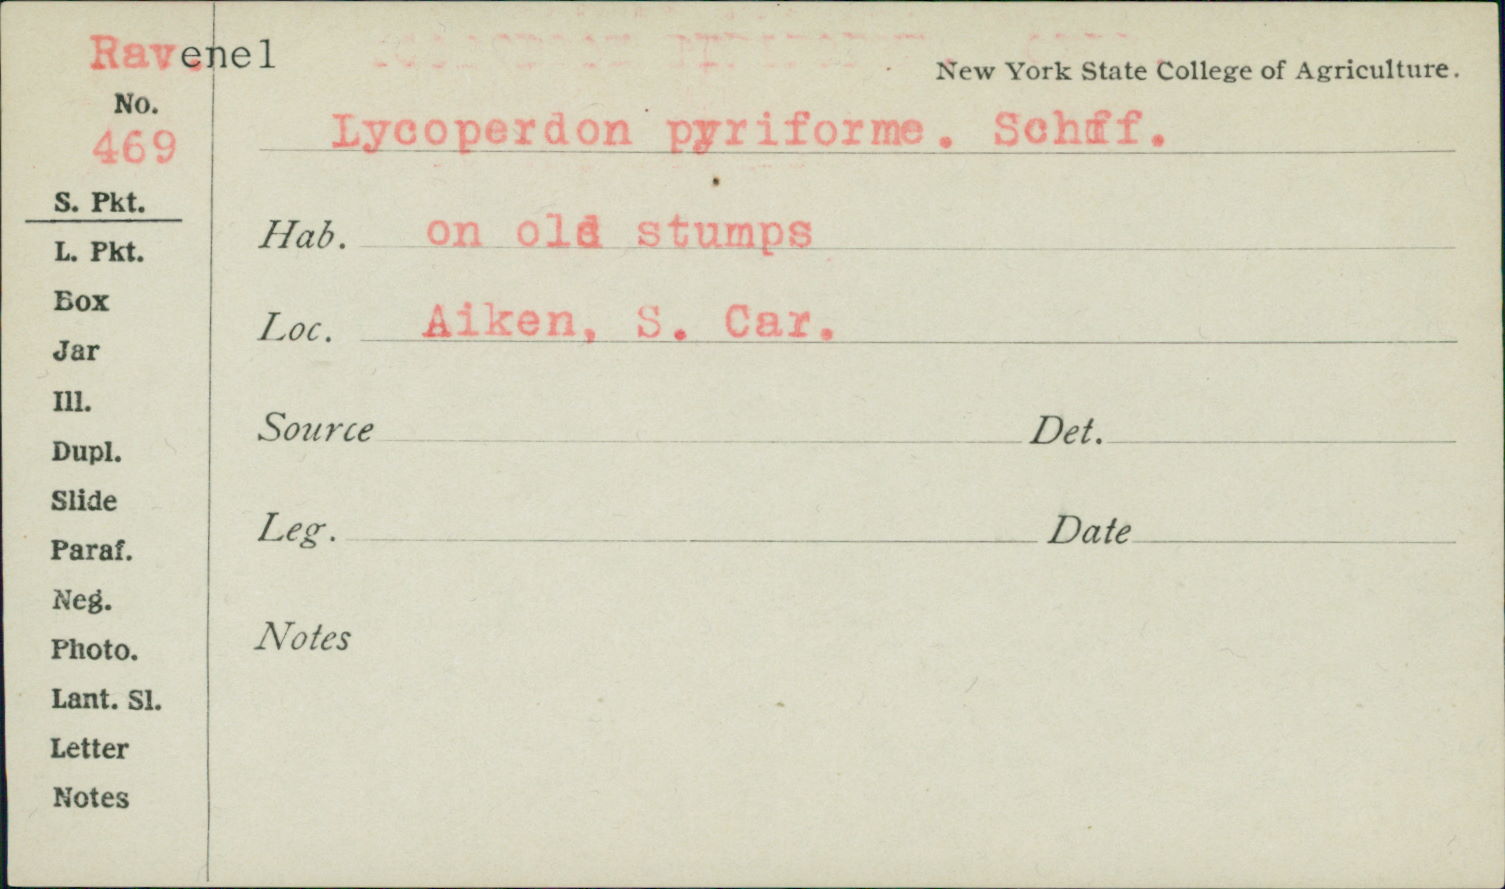 Ravenel
New York State College of Agriculture.
No.
469
Lycoperdon pyriforme. Schff.
S. Pkt.
Hab. on old stumps
L. Pkt.
Box
Loc. Aiken, S. Car.
Jar
Ill.
Source Det.
Dupl.
Slide
Leg. Date
Paraf.
Neg.
Notes
Photo.
Lant. Sl.
Letter
Notes